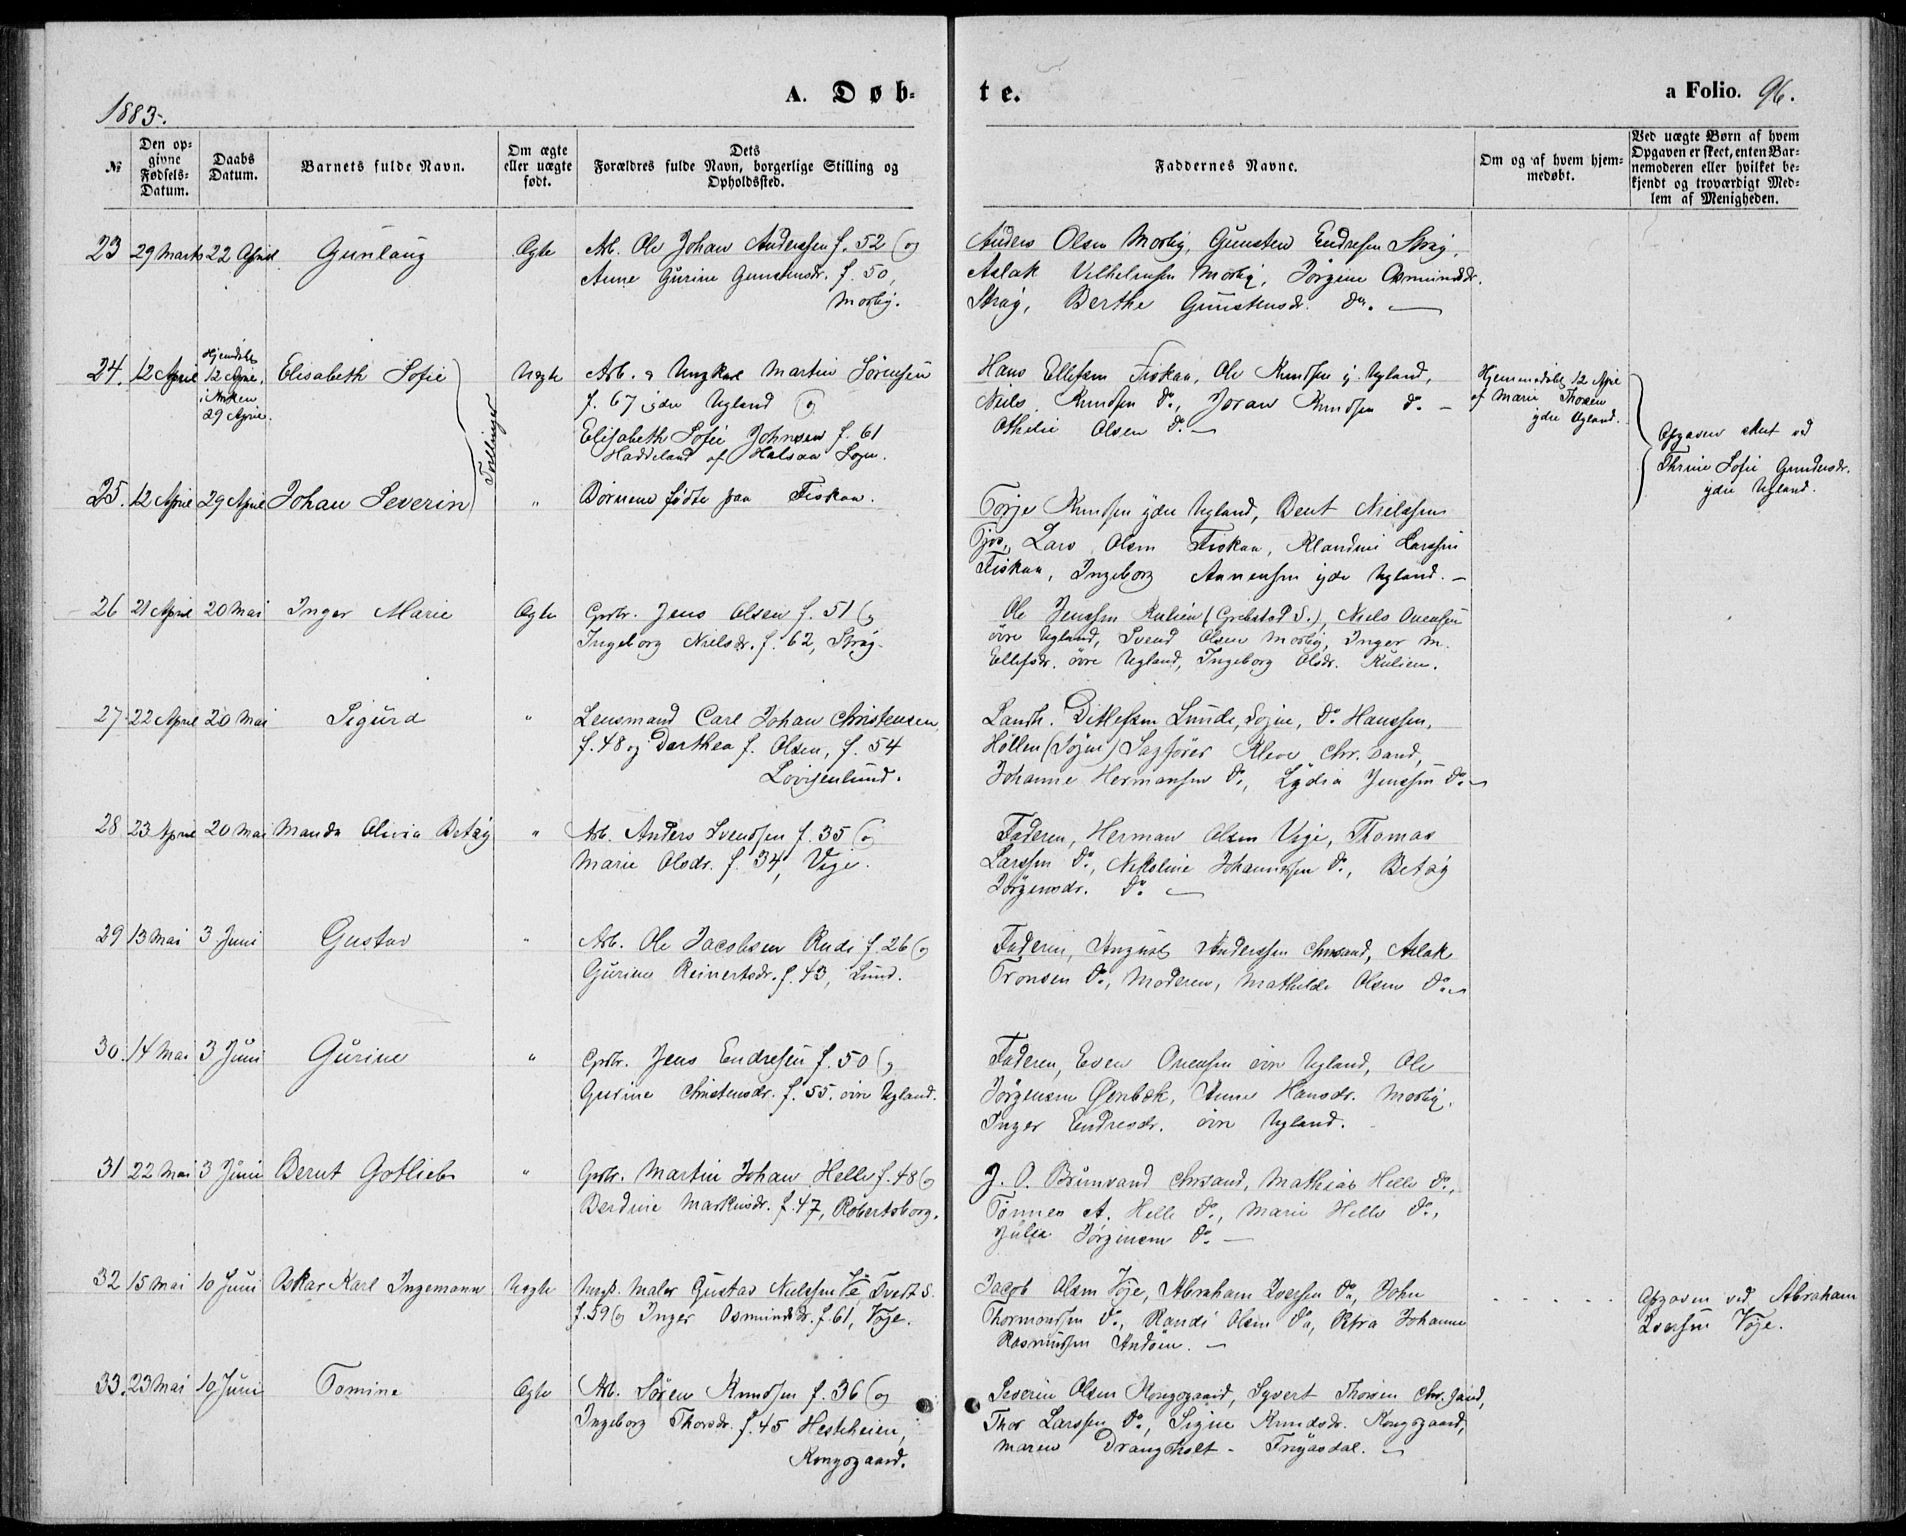 1883.
A. Døb-
te.
a Folio. 96.
№
Den op-
givne
Fødsels-
Datum.
Daabs
Datum.
Barnets fulde Navn.
Om ægte
eller uægte
født.
Dets
Forældres fulde Navn, borgerlige Stilling og
Opholdssted.
Faddernes Navne.
Om og af hvem hjem-
medøbt.
Ved uægte Børn af hvem
Opgaven er skeet, enten Bar-
nemoderen eller hvilket be-
kjendt og troværdigt Med-
lem af Menigheden.
23 29 Marts 22 April Gunlaug Ægte
Arb. Ole Johan Anderssen f. 52 og
Anne Gurine Gunstensdr. f. 50,
Mosby.
Anders Olsen Mosby, Gunsten Endresen Strøy,
Aslak Vilhelmsen Mosby, Jørgine Osmundsdr.
Strøy, Berthe Gunstensdr. do. —
24. 12 April
Hjemdøbt
12 April,
i Kirken
29 April.
Elisabeth Sofie Uægte
Arb. & Ungkarl Martin Sörensen
f. 67 ydre Ugland og
Elisabeth Sofie Johnsen f. 61
Haddeland af Halsaa Sogn.
Hans Ellefsen Fiskaa, Ole Knudsen y. Ugland,
Niels Knudsen do., Joran Knudsen do. —
Othelie Olsen do. —
Hjemmedøbt 12 April
af Marie Thorsen
ydre Ugland.
Tvillinger
Opgaven skeet ved
Thrine Sofie Gundersdr.
ydre Ugland.
25. 12 April 29 April Johan Severin "
Børnene fødte paa Fiskaa.
Torje Knudsen ydre Ugland, Bent Nielssen
Tjos, Lars Olsen Fiskaa, Klandine Larssen
Fiskaa, Ingeborg Aanensen ydre Ugland. —
26 21 April 20 Mai Inger Marie Ægte
Gprbr. Jens Olsen f. 51 og
Ingeborg Nielsdr. f. 62, Strøy.
Ole Jenssen Kulien (Grebstad S.), Niels Onensen
øvre Ugland, Svend Olsen Mosby, Inger M.
Ellefsdr. øvre Ugland, Ingeborg Olsdr. Kulien.
27. 22 April 20 Mai Sigurd "
Lensmand Carl Johan Christensen,
f. 48 og Dorthea f. Olsen, f. 54
Lovisenlund.
Landh. Ditlefsen Lunde, Sogne, do. Hanssen,
Høllen (Søgne) Sagfører Kleve Chr.sand,
Johanne Hermansen do., Lydia Jenssen do. —
28 23 April 20 Mai Manda Olivia Betzy "
Arb. Anders Svendsen f. 35 og
Marie Olsdr. f. 34, Vøje.
Faderen, Herman Olsen Vøje, Thomas
Larssen do., Nikoline Johannessen do., Betzy
Jørgensdr. do. —
29 13 Mai 3 Juni Gustav "
Arb. Ole Jacobsen Rude f. 26 og
Gurine Reinertsdr. f. 43, Lund.
Faderen, August Anderssen Chrsand, Aslak
Tronsen do., Moderen, Mathilde Olsen do. —
30. 14 Mai 3 Juni Gurine "
Gprbr. Jens Endresen f. 50 og
Gurine Christensdr. f. 55. øvre Ugland.
Faderen, Even Onensen øvre Ugland, Ole
Jørgensen Øenbæk, Anne Hansdr. Mosby,
Inger Endresdr. øvre Ugland.
31 22 Mai 3 Juni Bernt Gotlieb "
Gprbr. Martin Johan Helle f. 48 og
Berdine Markusdr. f. 47, Robertsborg.
J. O. Brunvand Chrsand, Mathias Helle do.,
Tönnes A. Helle do., Marie Helle do.,
Julia Jørgensen do. —
32 15 Mai 10 Juni Oskar Karl Ingemann Uægte
Ungk. Maler Gustav Nielssen Tveit S.
f. 59 og Inger Osmundsdr. f. 61, Vøje.
Jacob Olsen Vøje, Abraham Iversen do., John
Thormondsen do., Randi Olsen do, Petra Johanne
Rasmussen Andøen. —
Opgaven ved Abraham
Iversen Vøje.
33. 23 Mai 10 Juni Tomine Ægte
Arb. Søren Knudsen f. 36 og
Ingeborg Thorsdr. f. 45 Hesteheien,
Kongsgaard.
Severin Olsen Kongsgaard, Syvert Thorsen Chr.sand,
Thor Larssen do., Signe Knudsdr. Kongsgaard,
Maren Drangsholt - Frøysdal. —